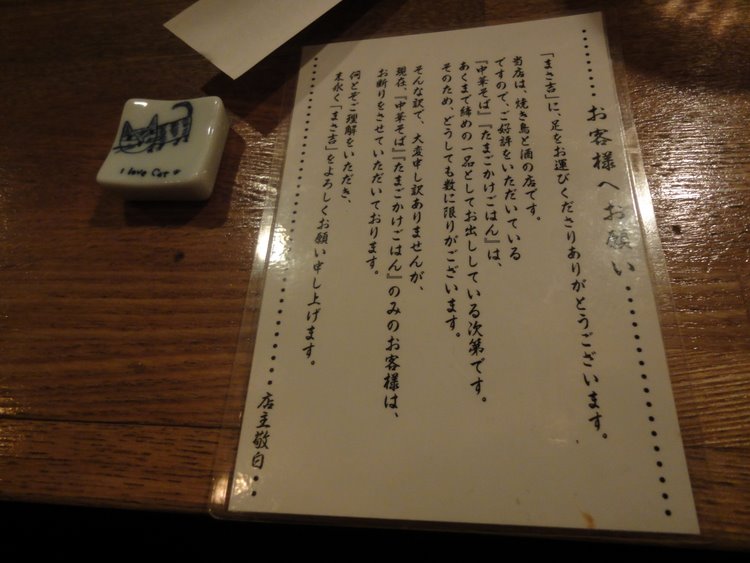 お客様へお願い
「まさ吉」に、足をお運びくださりありがとうございます。
当店は、焼き鳥と酒の店です。
ですので、ご好評をいただいている
『中華そば』『たまごかけごはん』は、
あくまで締めの一品としてお出ししている次第です。
そのため、どうしても数に限りがございます。
そんな訳で、大変申し訳ありませんが、
現在、『中華そば』『たまごかけごはん』のみのお客様は、
お断りをさせていただいております。
何とぞご理解をいただき、
末永く「まさ吉」をよろしくお願い申し上げます。
店主敬白
I love Cat